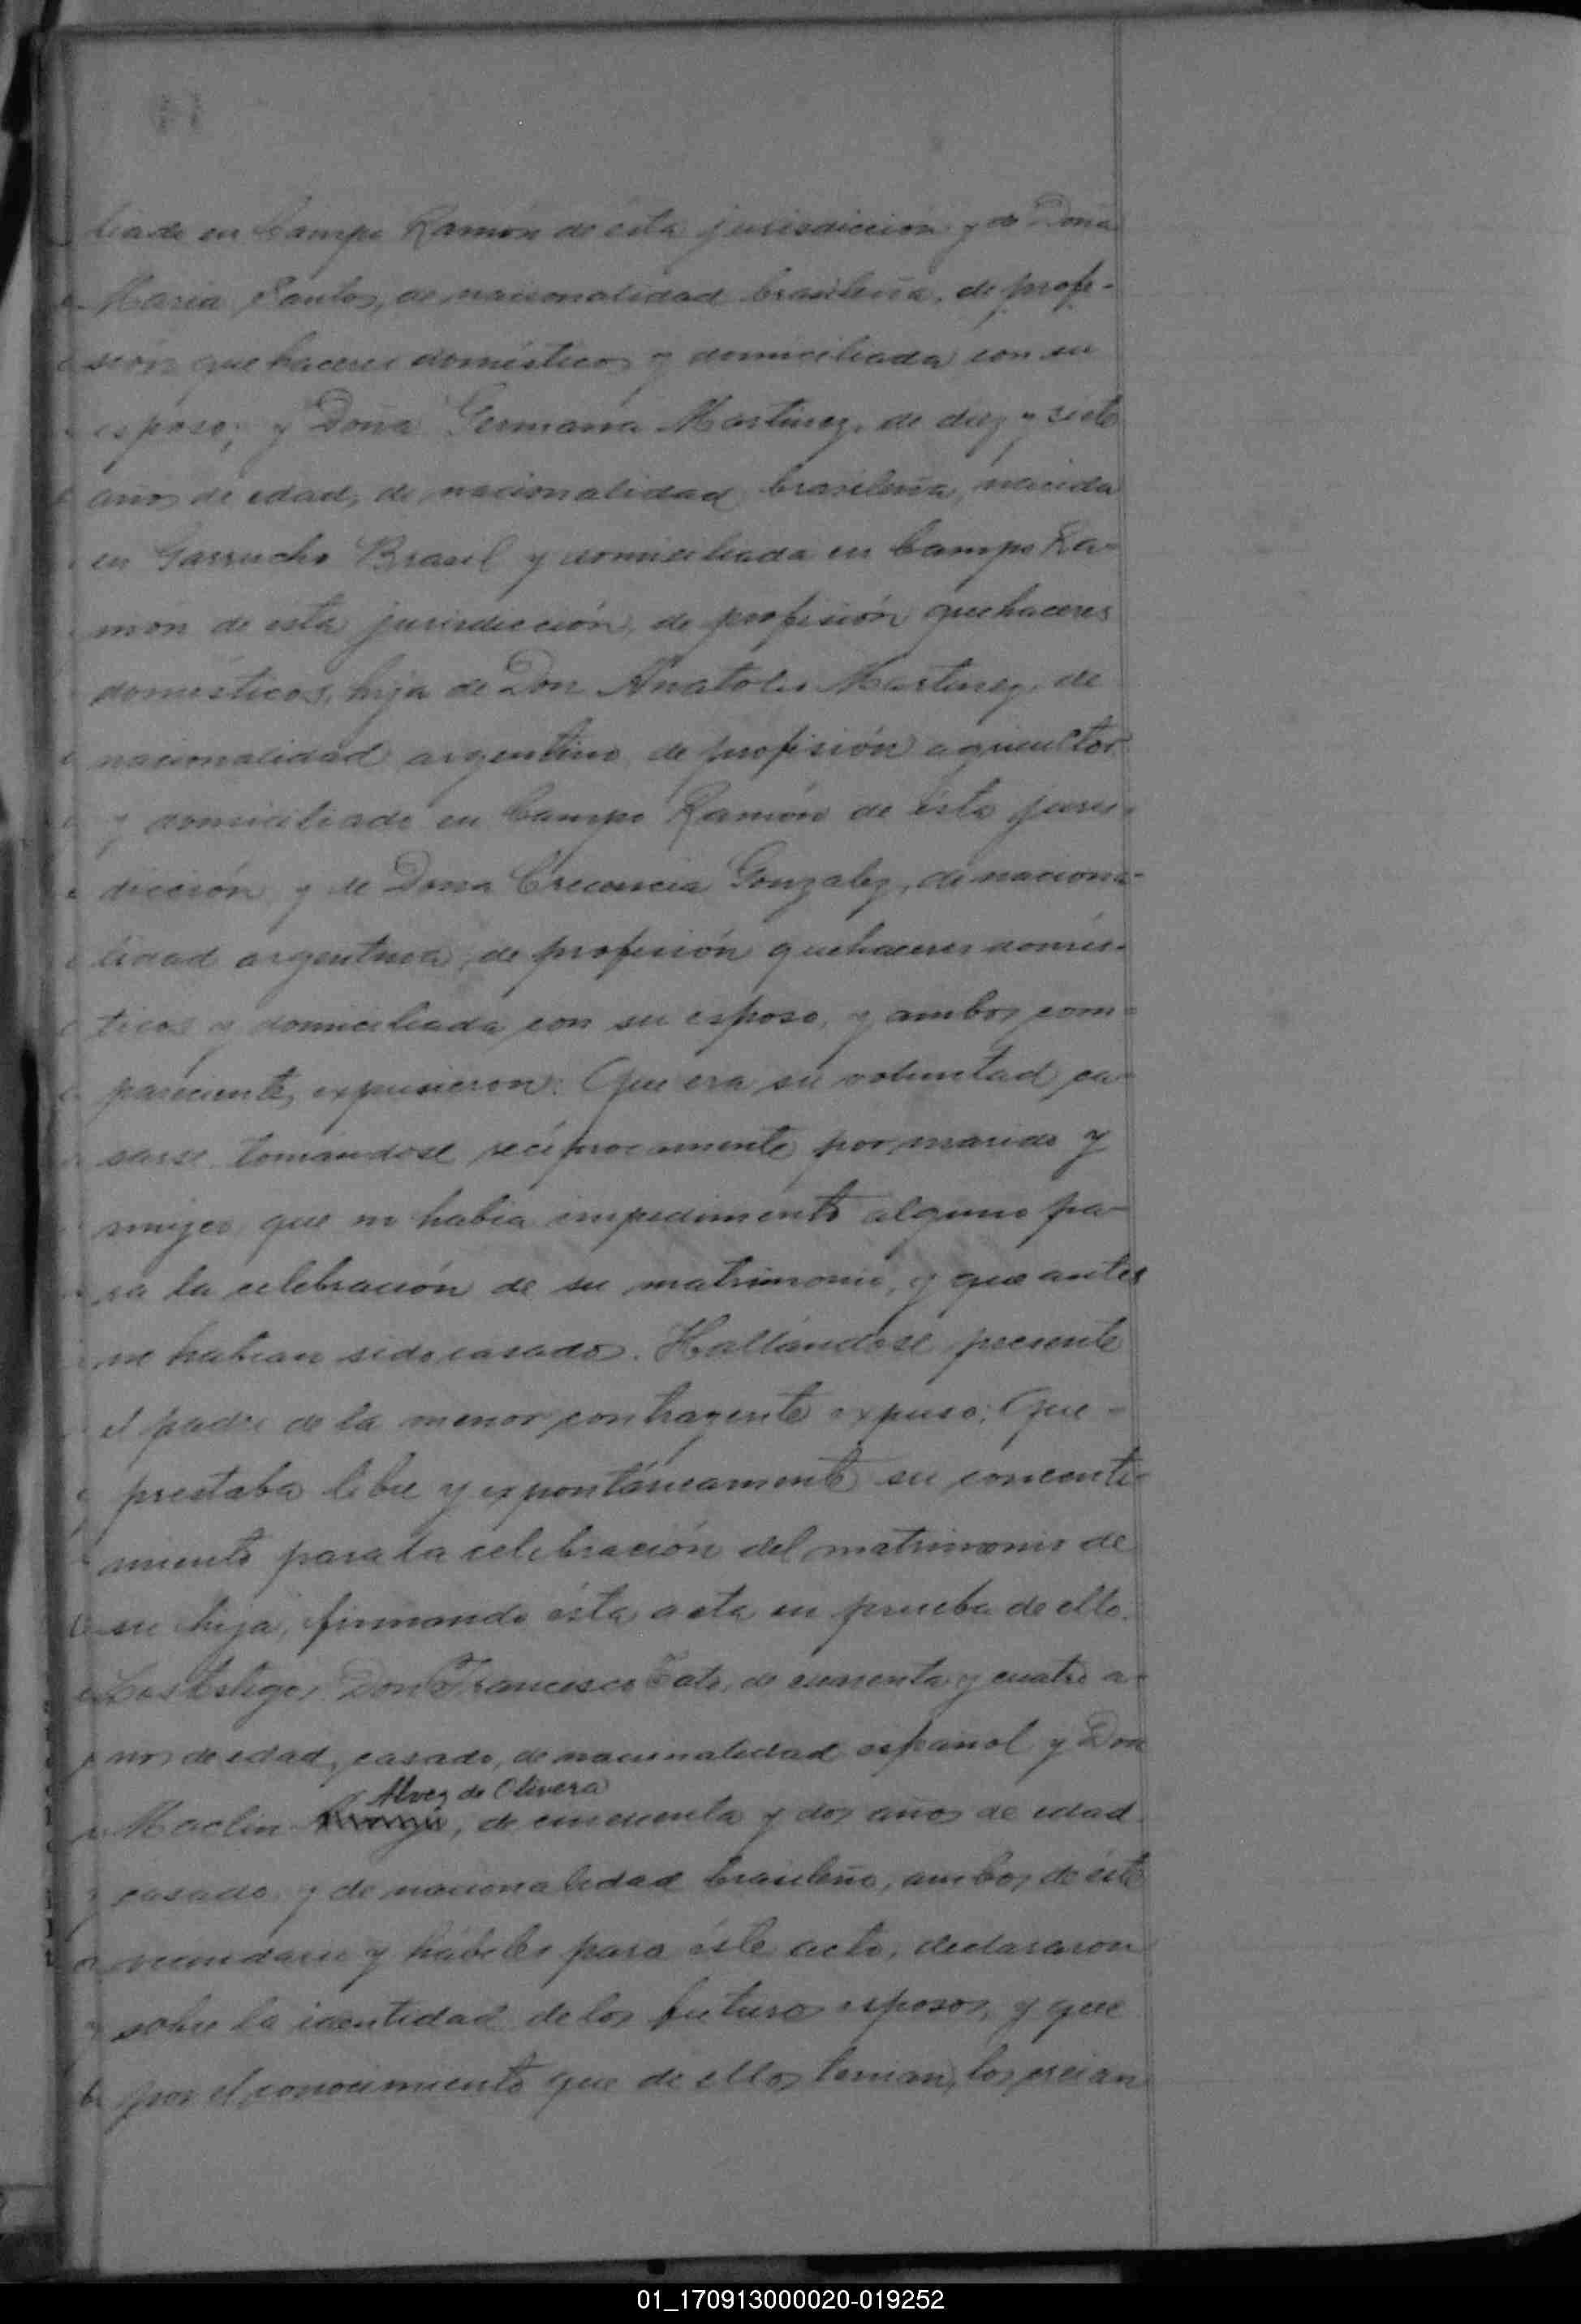 liado en Campo Ramón de ésta jurisdicción y de Doña
Maria Santos, de nacionalidad brasileña, de profe-
sión quehaceres domésticos y domiciliada con su
esposo; y Doña Germana Martinez, de diez y siete
años de edad, de nacionalidad brasileña, nacida
en Garrucho Brasil y domiciliada en Campo Ra-
món de esta jurisdicción, de profesión quehaceres
domésticos, hija de Don Anatolio Martinez, de
nacionalidad argentino, de profesión agricultor
y domiciliado en Campo Ramón de ésta juris-
dicción y de Doña Crecencia Gonzalez, de naciona-
lidad argentina, de profesión quehaceres domés-
ticos y domiciliada con su esposo, y ambos com-
parecientes, expusieron: Que era su voluntad ca-
sarse tomándose recíprocamente por marido y
mujer, que no habia impedimento alguno pa-
ra la celebración de su matrimonio, y que antes
no habian sido casados. Hallándose presente
el padre de la menor contrayente expuso: Que-
prestaba libre y expontáneamente su concenti-
miento para la celebración del matrimonio de
su hija, firmando ésta acta en prueba de ello.
Los testigos Don Francisco de cuarenta y cuatro a-
ños de edad, casado, de nacionalidad español y Don
Alvez de Olivera
Maclin, de cincuenta y dos años de edad
casado y de nacionalidad brasileño, ambos de éste
vecindario y hábiles para éste acto, declararon
sobre la identidad de los futuros esposos, y que
por el conocimiento que de ellos tenian, los creian
01_170913000020-019252